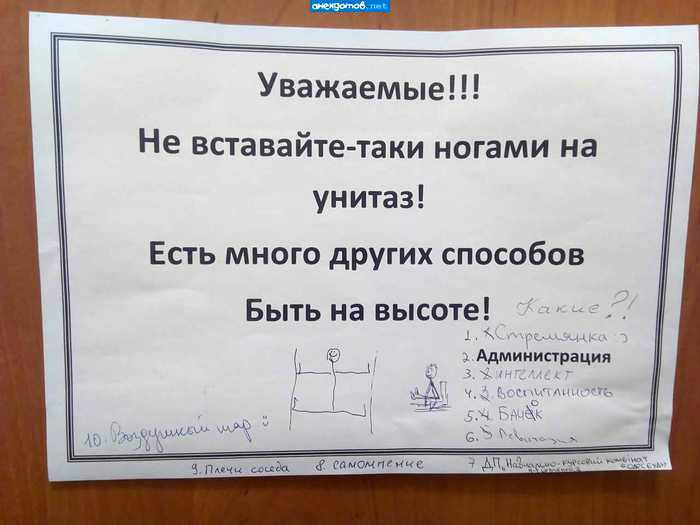 анекдотов.net
Уважаемые!!!
Не вставайте-таки ногами на
унитаз!
Есть много других способов
Быть на высоте!
Какие?!
1. Стремянка :)
2. Администрация
3. интеллект
4. воспитанность
5. Бачок
6. Левитация
10. Воздушный шар :)
9. Плечи соседа
8. самомнение
7 ДП "Навчально-курсовий комбінат